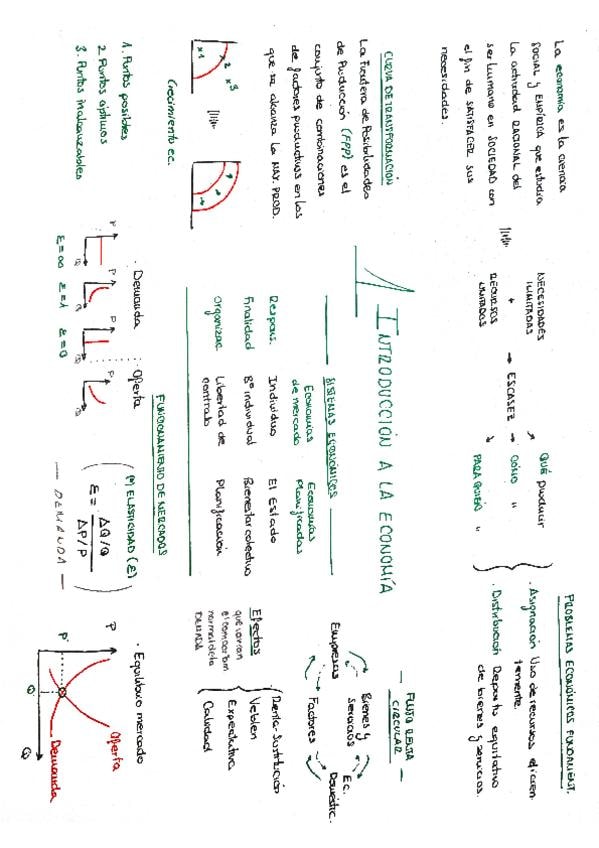 1 INTRODUCCIÓN A LA ECONOMÍA
La economía es la ciencia
SOCIAL y EMPÍRICA que estudia
la actividad RACIONAL del
ser humano en SOCIEDAD con
el fin de SATISFACER sus
necesidades.
NECESIDADES
ILIMITADAS
+
RECURSOS
LIMITADOS
→ ESCASEZ
QUÉ producir
CÓMO "
PARA QUIÉN "
PROBLEMAS ECONÓMICOS FUNDAMENT.
· Asignación Uso de recursos eficien-
temente.
· Distribución Reparto equitativo
de bienes y servicios.
CURVA DE TRANSFORMACIÓN
La Frontera de Posibilidades
de Producción (FPP) es el
conjunto de combinaciones
de factores productivos en los
que se alcanza la MAX. PROD.
x1 2 x3
Crecimiento ec.
1. Puntos posibles
2. Puntos óptimos
3. Puntos inalcanzables
SISTEMAS ECONÓMICOS
Economías
de mercado
Economías
Planificadas
Respons. Individuo El Estado
Finalidad Bº individual Bienestar colectivo
Organizac. Libertad de
contrato
Planificación
— FLUJO RENTA
CIRCULAR —
Empresas
Bienes y
servicios
Factores
Ec.
Domestic.
FUNCIONAMIENTO DE MERCADOS
· Demanda
· Oferta
P Q
P Q
P Q
E=∞ E=1 E=0
(*) ELASTICIDAD (E)
E = ΔQ/Q
ΔP/P
— DEMANDA —
Efectos
que varían
el comportam.
normal de la
DEMANDA
Renta-Sustitución
Veblen
Expectativa
Calidad
· Equilibrio mercado
P
Oferta
P'
Demanda
Q